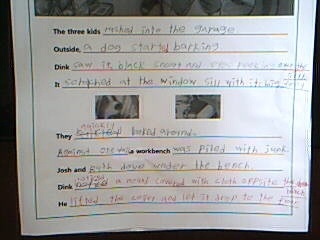 The three kids rushed into the garage.
Outside, a dog started barking.
Dink saw it, black snout and eyes peeking over the
sill
It scratched at the window sill with its
quickly
They looked around.
Against one wall a workbench was piled with junk.
Josh and Ruth dove under the bench.
noticed
Dink a mound covered with cloth opposite the
bench
He lifted the cover and let it drop to the floor